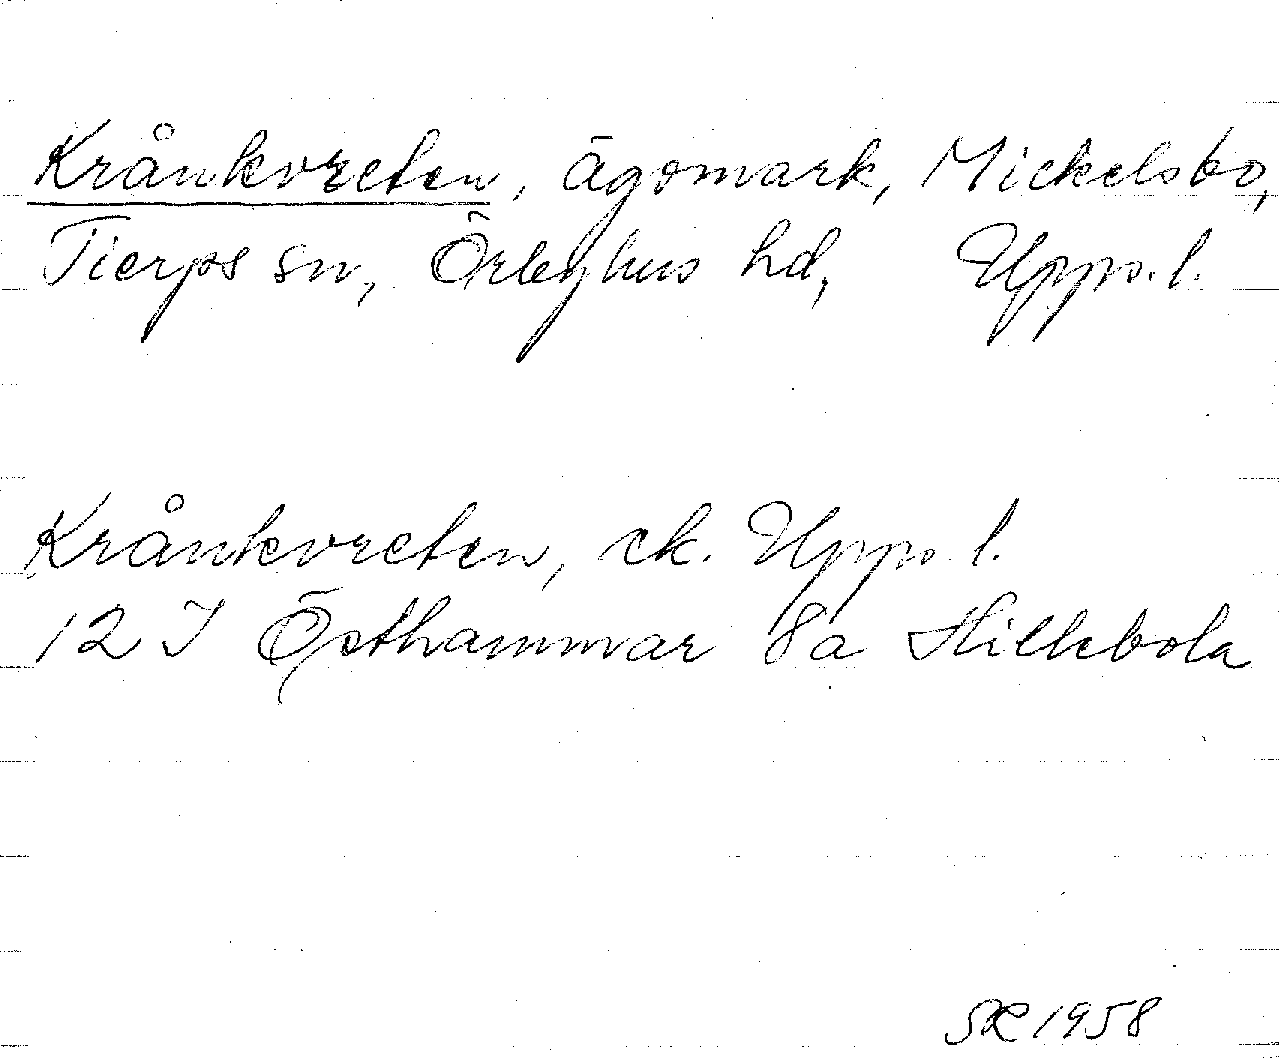 Krånkvreten, ägomark, Mickelsbo,
Tierps sn, Örbyhus hd, Uppl.
Krånkvreten, ek. Uppl.
12 I Östhammar 8a Hillebola
SR 1958